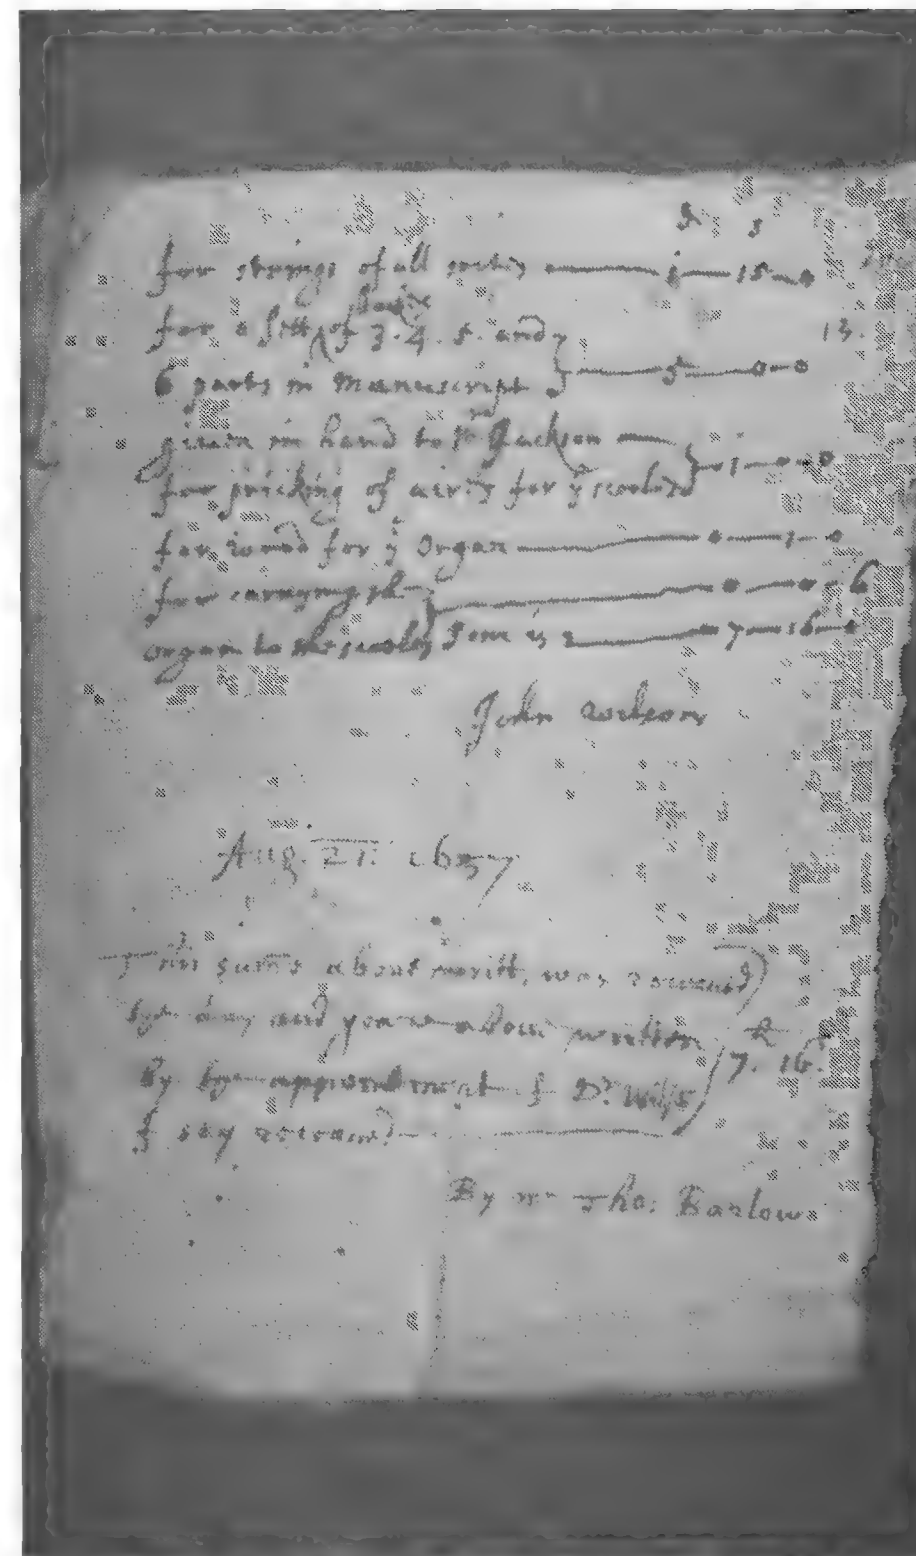 li s
for strings of all sortes — 1 — 15 — 0
bookes
for a sett ^ of 3. 4. 5. and
13.
6 parts in Manuscript } — 5 — 0 — 0
giuen in hand to Mr Jackson
for pricking of aires for ye scooles } — 1 — 0 — 0
for wood for ye Organ — 0 — 1 — 0
for carrying
organ to the scooles } — 0 — 0 — 6
Som is — 7 — 16 —
John Wilson
Aug. 21. 1657
This sume aboue writt, was receaued
day and yeare aboue written li
7. 16.
By appointment of Dr. Wilson
I say receaued
By me Tho: Barlow